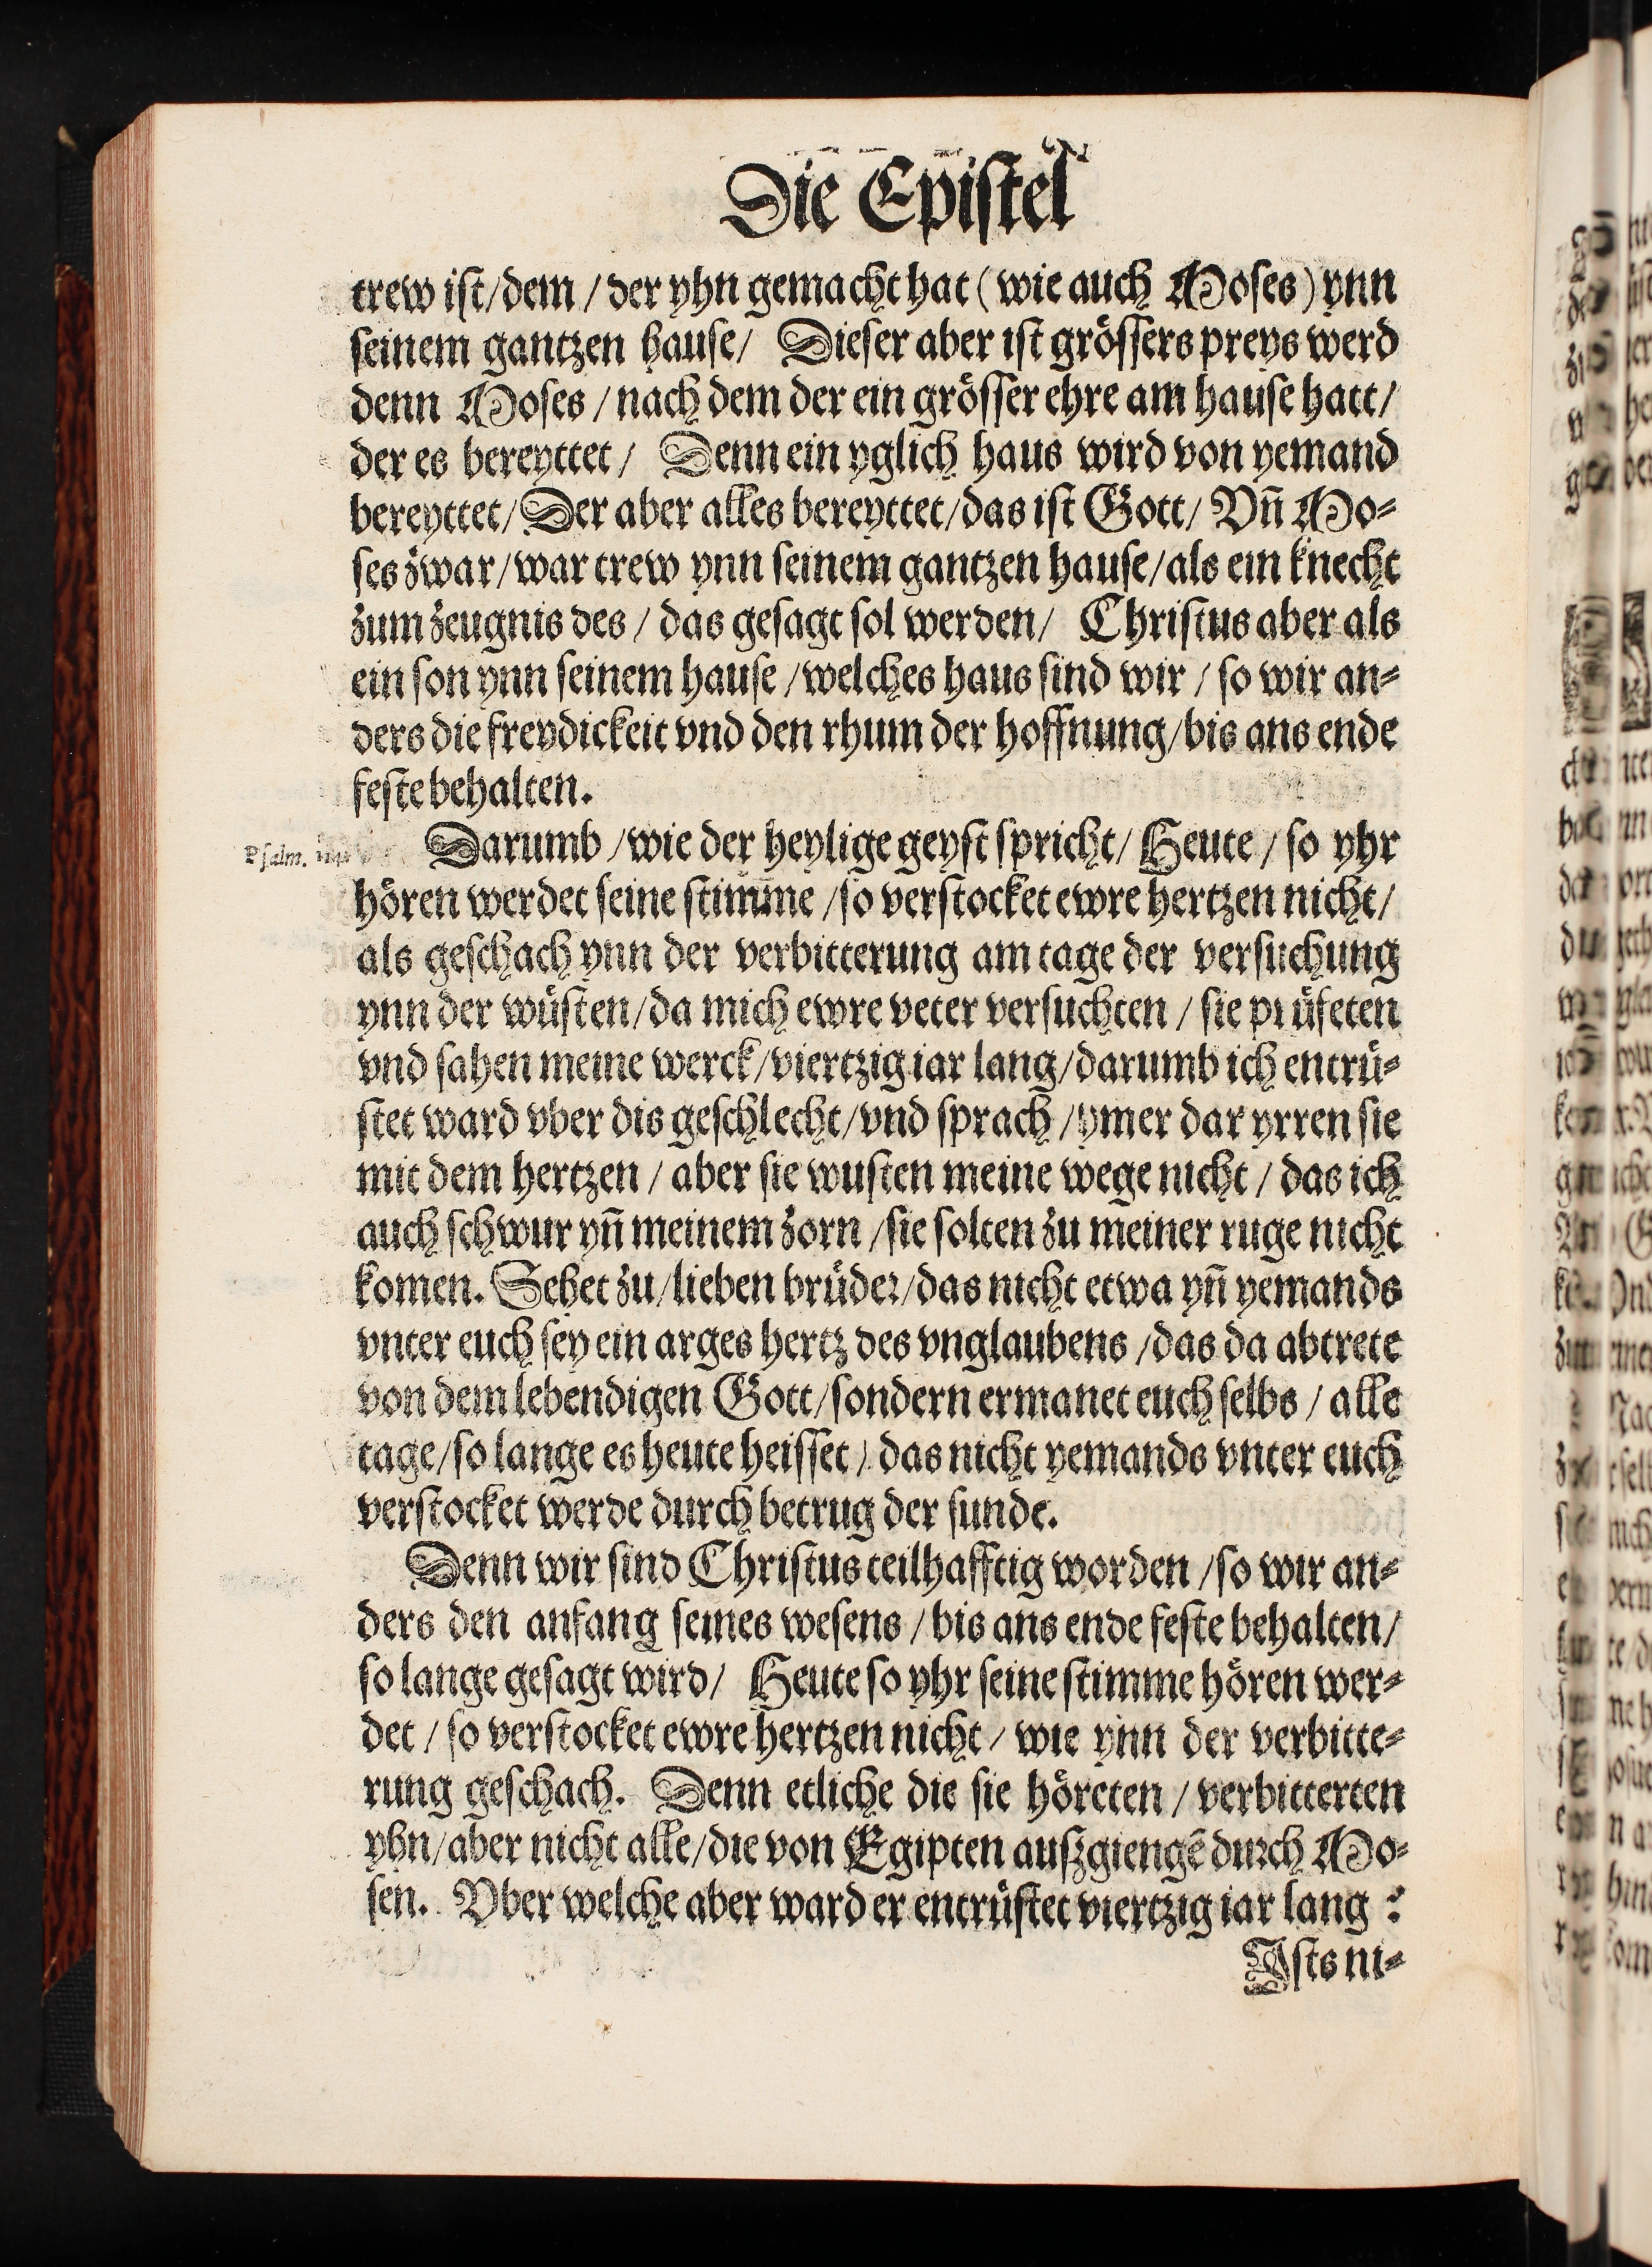 Die Epistel
trew ist/dem/der yhn gemacht hat (wie auch Moses) ynn
seinem gantzen hause/ Dieser aber ist grössers preys werd
denn Moses/nach dem der ein grösser ehre am hause hatt/
der es bereyttet/ Denn ein yglich haus wird von yemand
bereyttet/Der aber alles bereyttet/das ist Gott/ Vn̄ Mo-
ses zwar/war trew ynn seinem gantzen hause/als ein knecht
zum zeugnis des/das gesagt sol werden/ Christus aber als
ein son ynn seinem hause/welches haus sind wir/so wir an-
ders die freydickeit vnd den rhum der hoffnung/bis ans ende
feste behalten.
Psalm.
Darumb/wie der heylige geyst spricht/Heute/so yhr
hören werdet seine stimme/so verstocket ewre hertzen nicht/
als geschach ynn der verbitterung am tage der versuchung
ynn der wüsten/da mich ewre veter versuchten/sie prüfeten
vnd sahen meine werck/viertzig iar lang/darumb ich entrü-
stet ward vber dis geschlecht/vnd sprach/ymer dar yrren sie
mit dem hertzen/aber sie wusten meine wege nicht/das ich
auch schwur yn̄ meinem zorn/sie solten zu meiner ruge nicht
komen. Sehet zu/lieben brüder/das nicht etwa yn̄ yemands
vnter euch sey ein arges hertz des vnglaubens/das da abtrete
von dem lebendigen Gott/sondern ermanet euch selbs/alle
tage/so lange es heute heisset/das nicht yemands vnter euch
verstocket werde durch betrug der sunde.
Denn wir sind Christus teilhafftig worden/so wir an-
ders den anfang seines wesens/bis ans ende feste behalten/
so lange gesagt wird/ Heute so yhr seine stimme hören wer-
det/so verstocket ewre hertzen nicht/wie ynn der verbitte-
rung geschach. Denn etliche die sie höreten/verbitterten
yhn/aber nicht alle/die von Egipten auszgiengē durch Mo-
sen. Vber welche aber ward er entrüstet viertzig iar lang?
Ists ni-